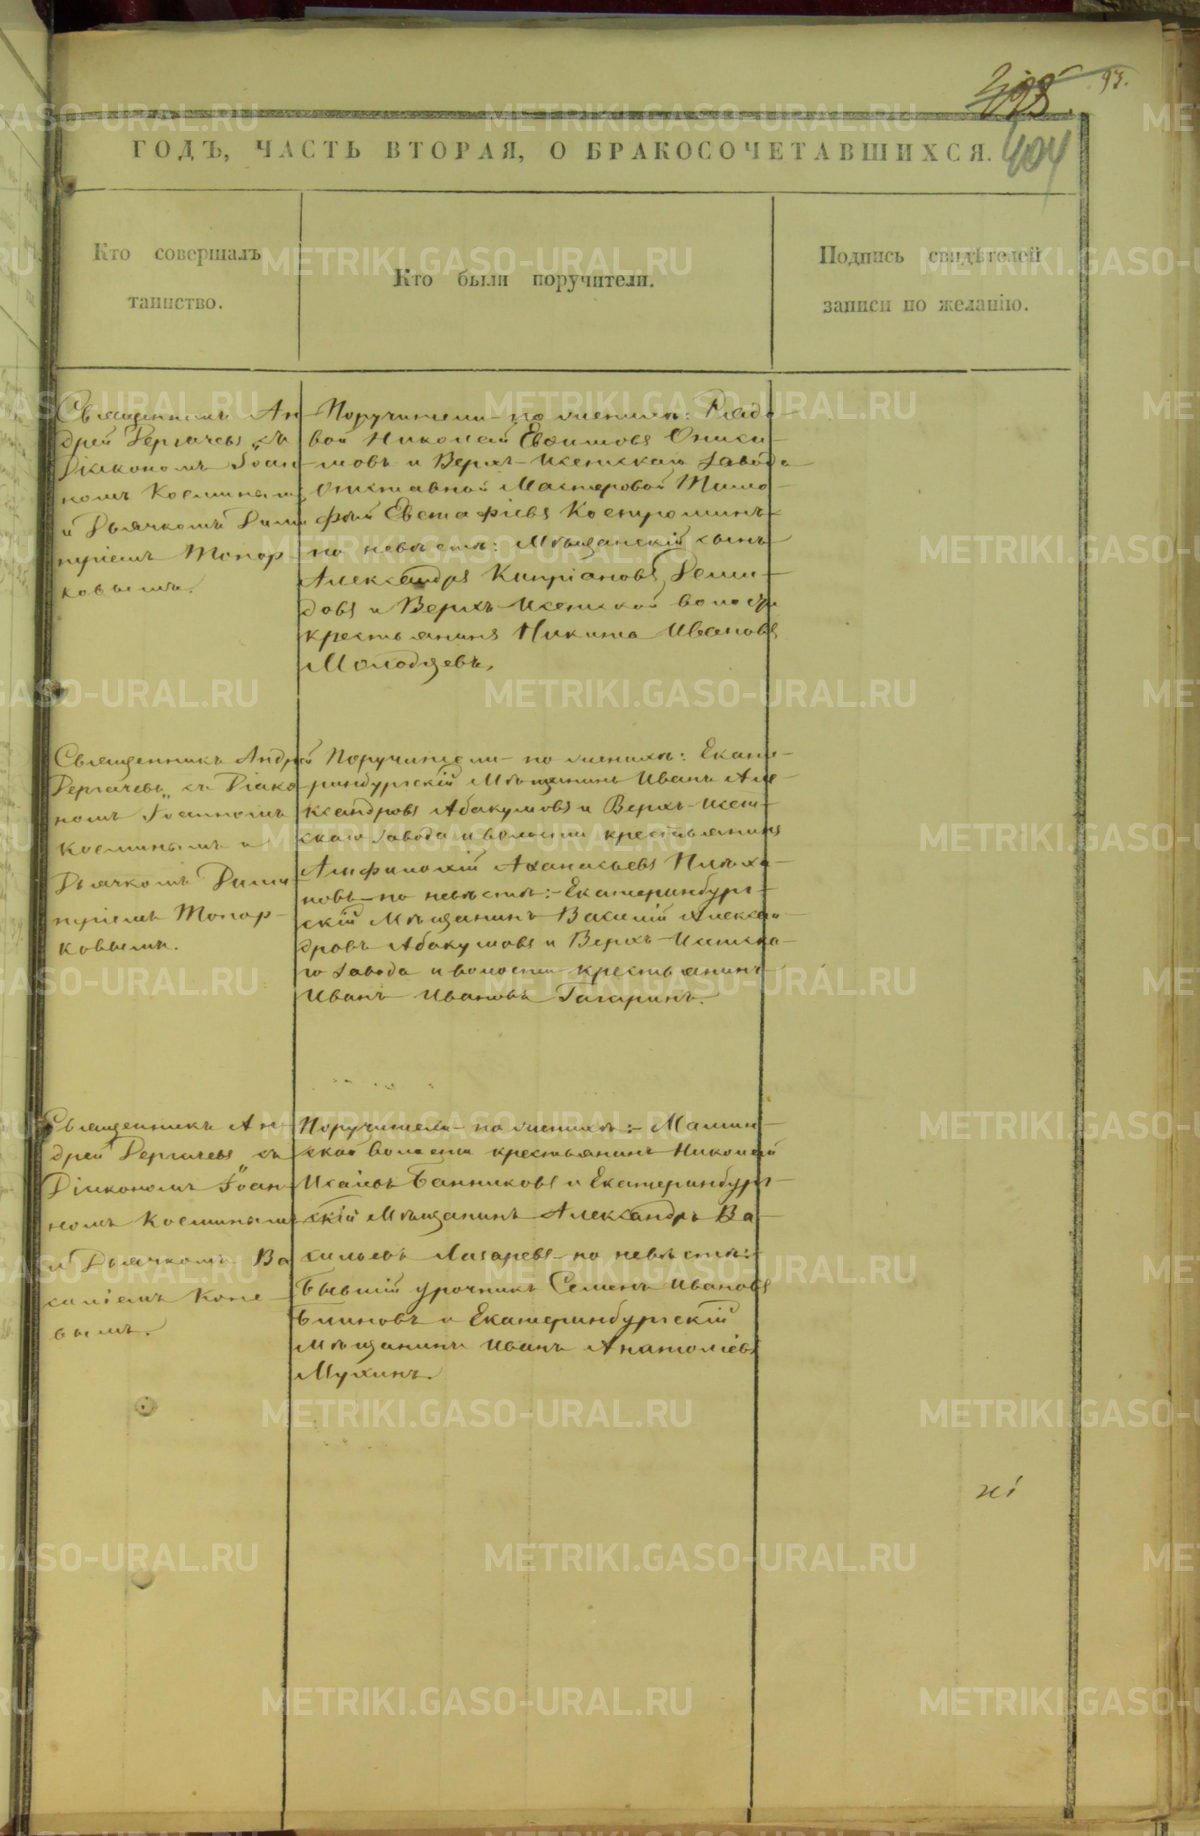 93.
404
ГОДЪ, ЧАСТЬ ВТОРАЯ, О БРАКОСОЧЕТАВШИХСЯ.
Кто совершалъ
таинство.
Кто были поручители.
Подпись свидѣтелей
записи по желанію.
Священникъ Ан-
дрей Дергачевъ съ
Діакономъ Іоан-
номъ Косминымъ
и Дьячкомъ Дими
тріемъ Топор
ковымъ.
Поручители по женихѣ: Рядо-
вой Николай Евѳимовъ Оники-
мовъ и Верхъ-Исетскаго завода
отставной Мастеровой Тимо-
фѣй Евстафіевъ Костроминъ-
по невѣстѣ: Мѣщанскій сынъ
Александръ Кипріановъ Деми-
довъ и Верхъ-Исетской волости
крестьянинъ Никита Ивановъ
Молодцевъ.
Священникъ Андрей
Дергачевъ, съ Діако
номъ Іоанномъ
Косминымъ и
Дьячкомъ Дими
тріемъ Топор-
ковымъ.
Поручители по женихѣ: Екате-
ринбургскій Мѣщанинъ Иванъ Але-
ксандровъ Абакумовъ и Верхъ-Исет-
скаго завода и волости крестьянинъ
Амфилохій Аѳанасьевъ
по невѣстѣ:- Екатеринбург-
скій Мѣщанинъ Василій Алексан-
дровъ Абакумовъ и Верхъ-Исетска-
го завода и волости крестьянинъ
Иванъ Ивановъ Гагаринъ.
Священникъ Ан-
дрей Дергачевъ съ
Діакономъ Іоан-
номъ Косминымъ
и Дьячкомъ Ва
силіемъ Коне-
вымъ.
Поручители по женихѣ:- Мамин-
ской волости крестьянинъ Николай
Исаевъ Банниковъ и Екатеринбург-
скій Мѣщанинъ Александръ Ва-
сильевъ Лазаревъ по невѣстѣ:-
Бывшій урочникъ Семенъ Ивановъ
Блиновъ и Екатеринбургскій
Мѣщанинъ Иванъ Анатоліевъ
Мухинъ.
METRIKI.GASO-URAL.RU